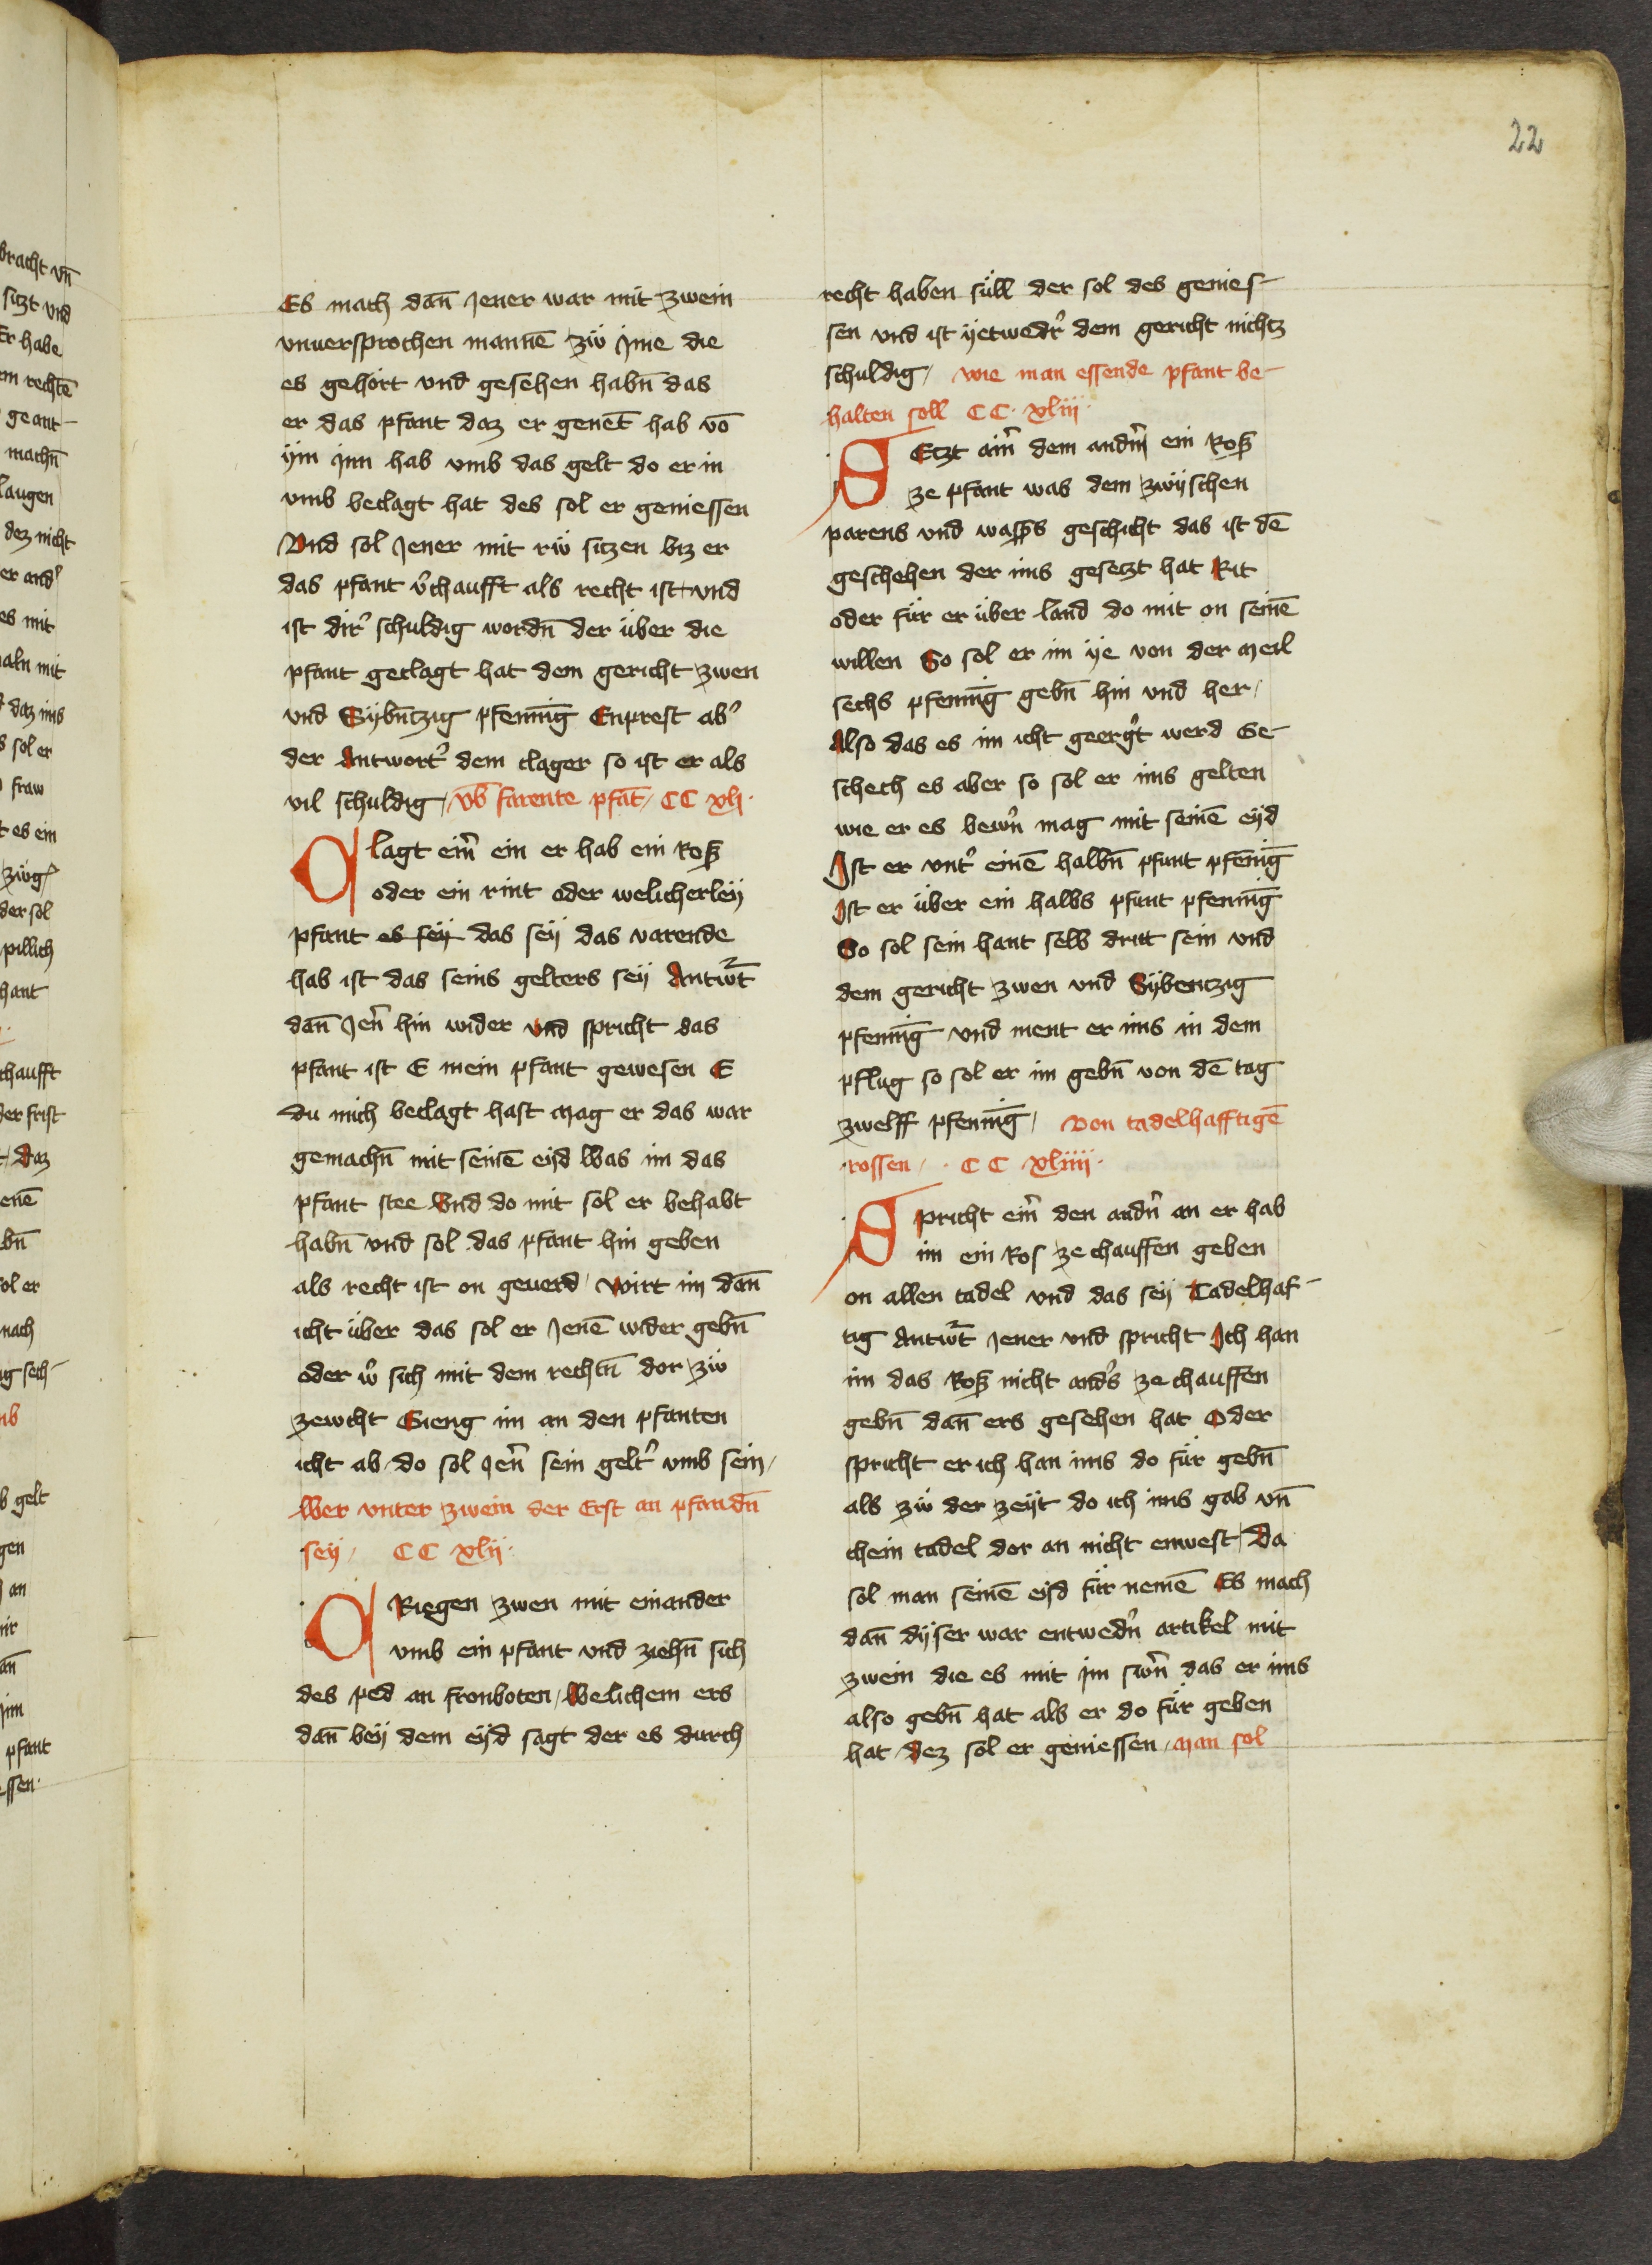 22
Es mach dan̄ Jener war mit zwein
vnuersprochen mannē zw̎ Jme die
es gehört vnd gesehen habn̄ das
er das pfant daz er genēt hab vō
ÿm Jnn hab vmb das gelt do er in
vmb beclagt hat des sol er geniessen
Vnd sol Jener mit rw̎ sitzen biz er
das pfant v̉chaufft als recht ist vnd
ist dir̉ schuldig wordn̄ der über die
pfant geclagt hat dem gericht zwen
vnd Sÿbn̄tzig pfennīg Enprest ab̉
der Antwort̉ dem clager so ist er als
vil schuldig / vb̄ farente pfāt / CC xlj ·
Clagt ein̉ ein er hab ein Roß
oder ein rint oder welicherleÿ
pfant es seÿ das seÿ das varende
hab ist das seins gelters seÿ Antw̉t
dan̄ Jen̉ hin wider vnd spricht das
pfant ist E mein pfant gewesen E
du mich beclagt hast Mag er das war
gemachn̄ mit seinē eÿd Was im das
pfant stee Vnd do mit sol er behabt
habn̄ vnd sol das pfant hin geben
als recht ist on geuerd / Wirt im dan̄
icht über das sol er Jenē wider gebn̄
oder w̉ sich mit dem rechtn̄ dor zw̎
zewcht Gieng im an den pfanten
icht ab do sol Jen̉ sein gelt̉ vmb sein /
Wer vnter zwein der Erst an pfandn̄
seÿ / CC xlij ·
CRiegen zwen mit einander
vmb ein pfant vnd ziehn̄ sich
des ped an fronboten / Welichem ers
dan̄ beÿ dem eÿd sagt der es durch
recht haben süll der sol des genies-
sen vnd ist ÿetwedr̉ dem gericht nichtz
schuldig / wie man essende pfant be-
halten soll CC · xliij ·
SEtzt ain̉ dem andn̉ ein Roß
ze pfant was dem zwÿschen
parens vnd waßs geschicht das ist dē
geschehen der ims gesetzt hat Rit
oder für er über land do mit on seinē
willen So sol er im ÿe von der Meil
sechs pfennīg gebn̄ hin vnd her /
Also das es im icht geerg̉t werd Ge-
schech es aber so sol er ims gelten
wie er es bewn̉ mag mit seinē eÿd
Ist er vnt̉ einē halbn̄ pfunt pfennīg
Ist er über ein halbs pfunt pfennīg
So sol sein hant selb dritt sein vnd
dem gericht zwen vnd Sÿbentzig
pfennīg vnd ment er ims in dem
pflug so sol er im gebn̄ von dē tag
zwelff pfennīg / Von tadelhafftigē
rossen / · CC xliiij ·
Spricht ein̉ den andn̉ an er hab
im ein Ros ze chauffen geben
on allen tadel vnd das seÿ Tadelhaf-
tig Antw̉t Jener vnd spricht Ich han
im das Roß nicht and̉s ze chauffen
gebn̄ dan̄ ers gesehen hat Oder
spricht er ich han ims do für gebn̄
als zw̎ der zeÿt do ich ims gab vn̄
chein tadel dor an nicht enwest / Da
sol man seinē eÿd für nemē Es mach
dan̄ dÿser war entwedn̉ artikel mit
zwein die es mit im swn̉ das er ims
also gebn̄ hat als er do für geben
hat / dez sol er geniessen / Man sol